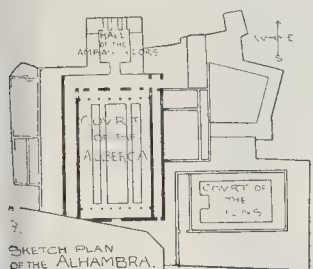 HALL
OF THE
AMBASSADORS
W E
S
COURT
OF THE
ALBERCA
COURT OF
THE
LIONS
7.
SKETCH PLAN
OF THE ALHAMBRA.